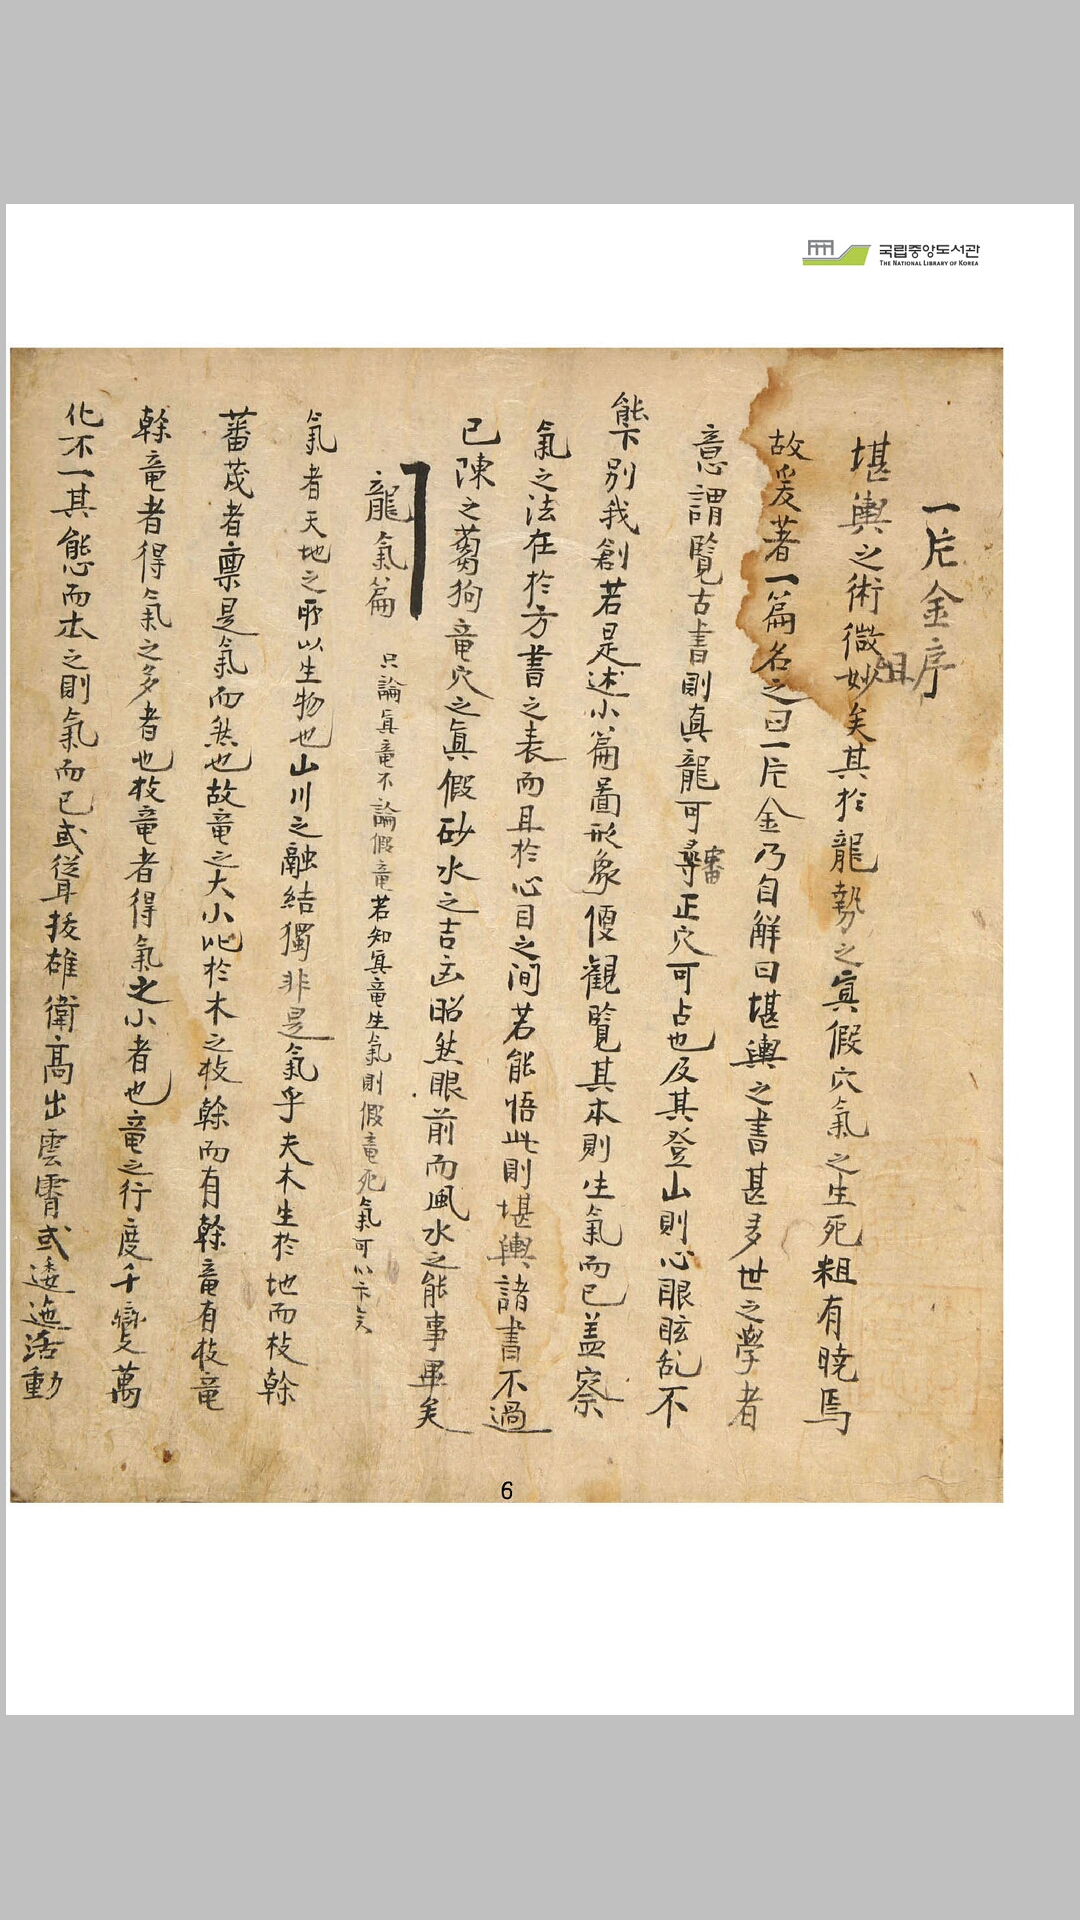 국립중앙도서관
THE NATIONAL LIBRARY OF KOREA
一片金序
堪輿之術微妙矣其於龍勢之眞假穴氣之生死粗有曉焉
故爰著一篇名之曰一片金乃自解曰堪輿之書甚多世之學者
意謂覽古書則真龍可尋審正穴可占也及其登山則心眼眩乱不
能下別我創若是述小篇圖形象便觀覽其本則生氣而已盖察
氣之法在於方書之表而且於心目之間若能悟此則堪輿諸書不過
已陳之蒭狗竜穴之眞假砂水之吉凶昭然眼前而風水之能事畢矣
龍氣篇 只論眞竜不論假竜若知眞竜生氣則假竜死氣可以卞矣
氣者天地之所以生物也山川之融結獨非是氣乎夫木生於地而枝榦
蕃茂者禀是氣而然也故竜之大小比於木之枝榦而有榦竜有枝竜
榦竜者得氣之多者也枝竜者得氣之小者也竜之行度千變萬
化不一其態而本之則氣而已或聳拔雄衛高出雲霄或逶迤活動
6